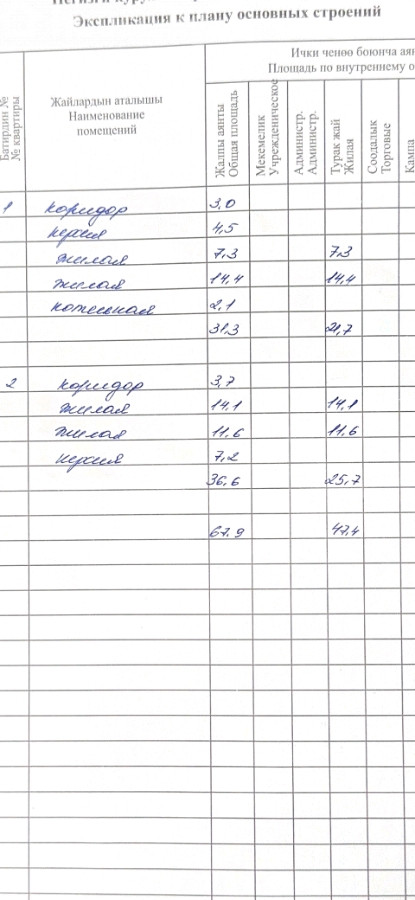 Экспликация к плану основных строений
Ички ченөө боюнча аян
Площадь по внутреннему о
Батирдин №
№ квартиры
Жайлардын аталышы
Наименование
помещений
Жалпы аянты
Общая площадь
Мекемелик
Учрежденическое
Администр.
Администр.
Турак жай
Жилая
Соодалык
Торговые
Кампа
1 коридор 3,0
кухня 4,5
жилая 7,3 7,3
жилая 14,4 14,4
котельная 2,1
31,3 21,7
2 коридор 3,7
жилая 14,1 14,1
жилая 11,6 11,6
кухня 7,2
36,6 25,7
67,9 47,4